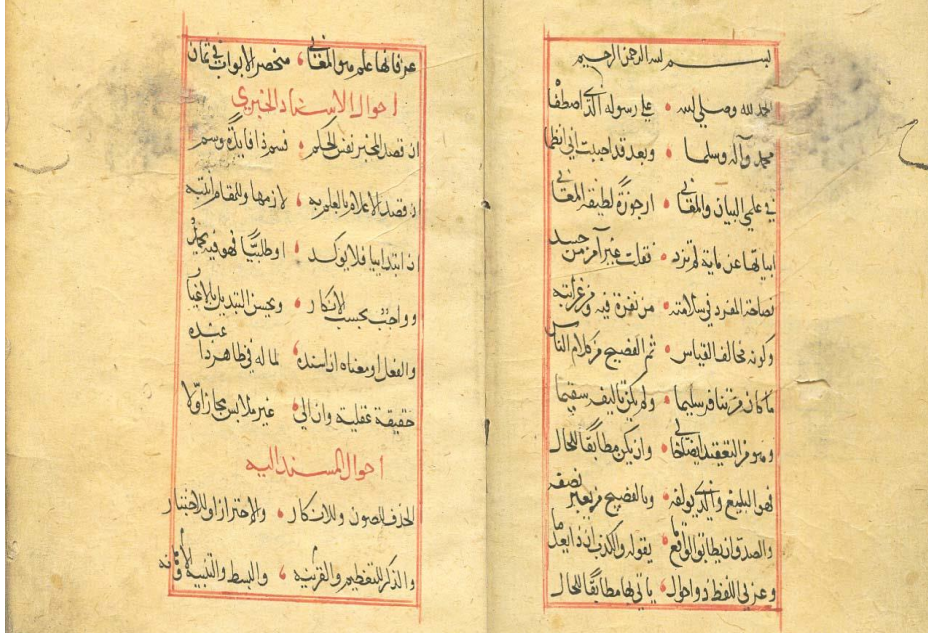 بسم الله الرحمن الرحيم
الحمد لله وصلي الله • علي رسوله الذي اصطفاه
محمد وآله وسلما • وبعد قد احببت اني انظما
في علمي البيان والمعاني • ارجوزةً لطيفة المعاني
ابياتها عن ماية لم تزد • فقلت غير آمن من حسد
فصاحة المفرد في سلامته • من نفرة فيه ومن غرابته
وكونه مخالف القياس • ثم الفصيح من كلام الناس
ما كان من تنافر سليما • ولم يكن تاليفه سقيما
وهو من التعقيد ايضا خالي • وان يكن مطابقًا للحال
فهو البليغ والذي يولفه • وبالفصيح من يعبر نصفه
والصدق ان يطابق الواقع ما • يقوله والكذب ان ذا يعدما
وعربي اللفظ ذو احوال • ياتي بها مطابقًا للحال
عرفانها علم هو المعاني • منحصر الابواب في ثمان
احوال الاسناد الخبري
ان قصد المخبر نفس الحكم • فسم ذا فايدة وسم
ان قصد الاعلام بالعلم به • لازمها وللمقام انتبه
ان ابتداييا فلا يوكد • او طلبيًّا فهو فيه يحمد
وواجب بحسب الانكار • ويحسن التبديل بالاغيار
والفعل او معناه ان اسنده • لما له في ظاهر ذا عنده
حقيقة عقلية وان الي • غير ملابس مجاز اوّلا
احوال المسند اليه
الحذف للصون وللانكار • والاحتراز او للاختبار
والذكر للتعظيم والقرينه • والبسط والتنبيه